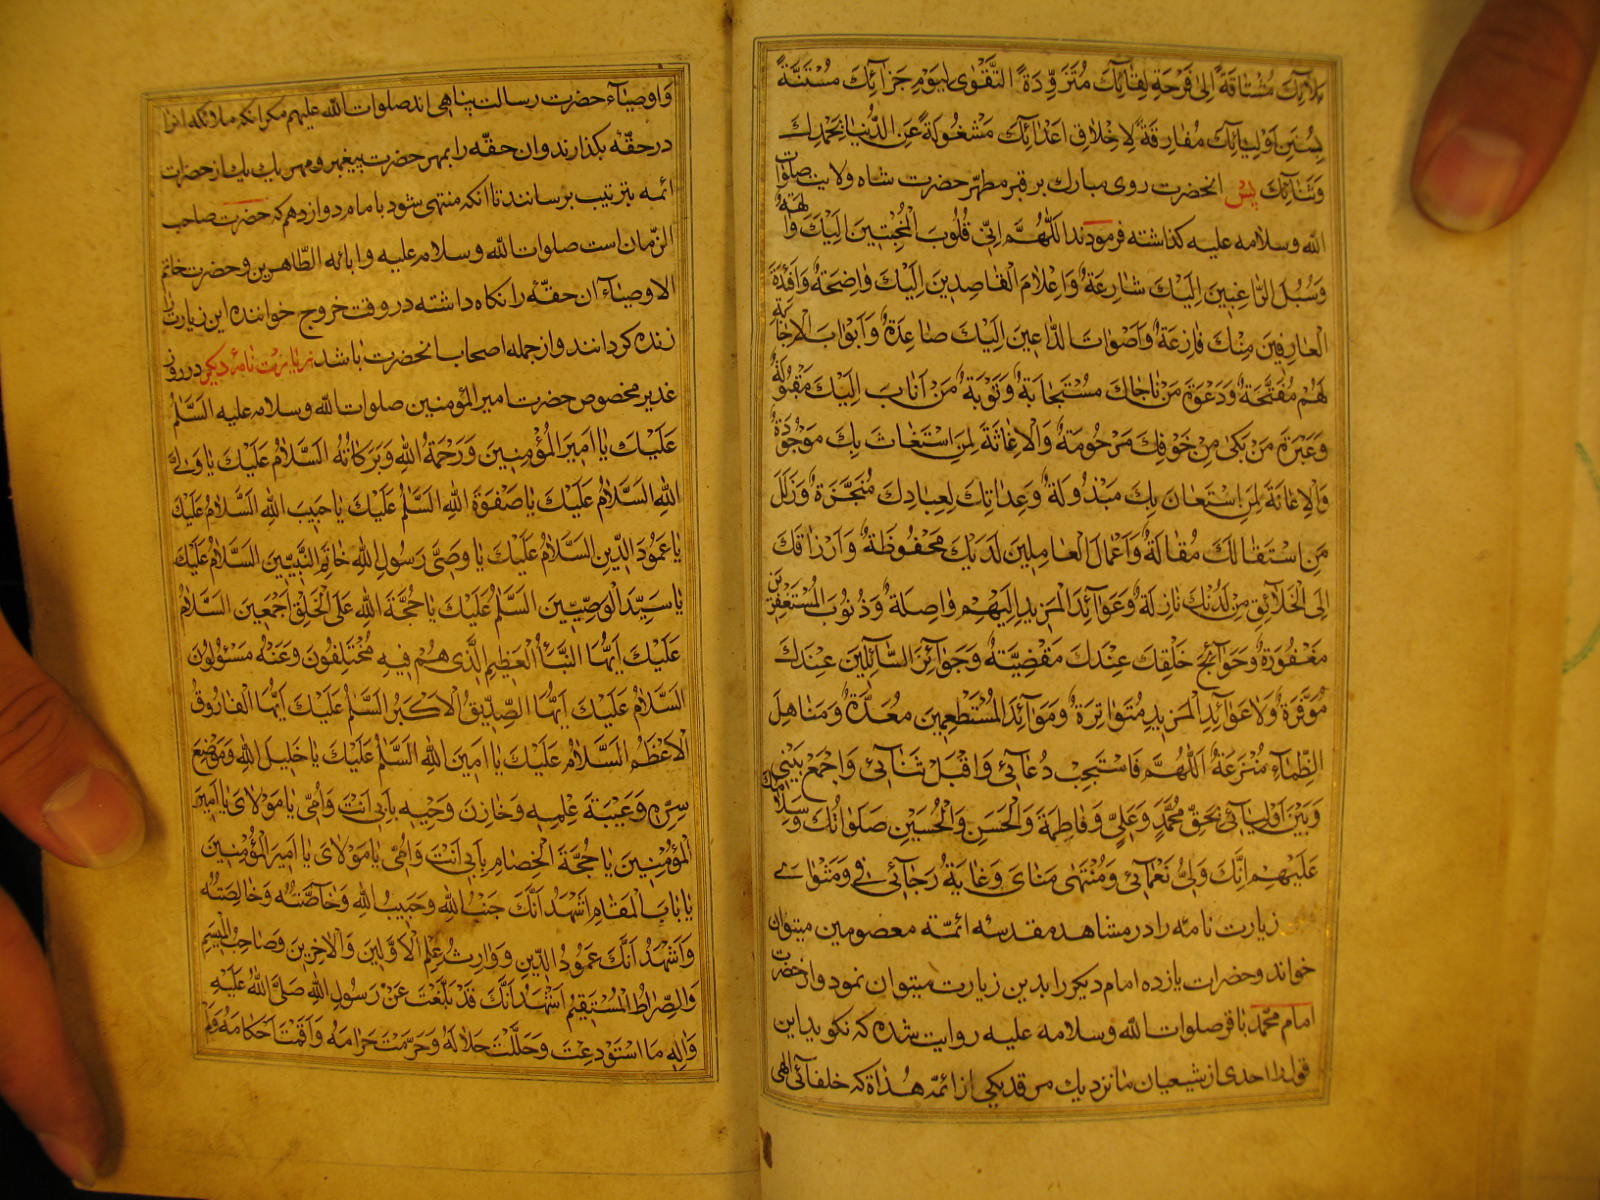 بلائك مشتاقة إلى فرحة لقائك متزودة التقوى ليوم جزائك مستنة
بسنن أوليائك مفارقة لأخلاق أعدائك مشغولة عن الدنيا بحمدك
وثنائك پس انحضرت روی مبارک بر قبر مطهر حضرت شاه ولایت صلوات
الله وسلامه علیه گذاشته فرمودند اللهم إن قلوب المخبتين إليك والهة
وسبل الراغبين إليك شارعة وأعلام القاصدين إليك واضحة وأفئدة
العارفين منك فازعة وأصوات الداعين إليك صاعدة وأبواب الإجابة
لهم مفتحة ودعوة من ناجاك مستجابة وتوبة من أناب إليك مقبولة
وعبرة من بكى من خوفك مرحومة والإغاثة لمن استغاث بك موجودة
والإعانة لمن استعان بك مبذولة وعداتك لعبادك منجزة وزلل
من استقالك مقالة وأعمال العاملين لديك محفوظة وأرزاقك
إلى الخلائق من لدنك نازلة وعوائد المزيد إليهم واصلة وذنوب المستغفرين
مغفورة وحوائج خلقك عندك مقضية وجوائز السائلين عندك
موفرة وعوائد المزيد متواترة وموائد المستطعمين معدة ومناهل
الظماء مترعة اللهم فاستجب دعائي واقبل ثنائي واجمع بيني
وبين أوليائي بحق محمد وعلي وفاطمة والحسن والحسين صلواتك وسلامك
عليهم إنك ولي نعمائي ومنتهى مناي وغاية رجائي في ومثواي
زیارت نامه را در مشاهد مقدسه ائمه معصومین میتوان
خواند وحضرات یازده امام دیگر را بدین زیارت میتوان نمود واز حضرت
امام محمد باقر صلوات الله وسلامه علیه روایت شده که نگوید این
قول را احدی از شیعیان ما نزدیک مرقد یکی از ائمه هداة که خلفای الهی
واوصیاء حضرت رسالت پناهی اند صلوات الله علیهم مگر انکه ملائکه انرا
در حقه بگذارند وان حقه را بمهر حضرت پیغمبر ومهر یک یک از حضرات
ائمه بترتیب برسانند تا انکه منتهی شود بامام دوازدهم که حضرت صاحب
الزمان است صلوات الله وسلامه علیه وابائه الطاهرین وحضرت خاتم
الاوصیاء ان حقه را نگاه داشته در وقت خروج خواننده این زیارت را
زنده گردانند واز جمله اصحاب انحضرت باشد زیارت نامه دیگر در روز
غدیر مخصوص حضرت امیر المؤمنین صلوات الله وسلامه علیه السلام
عليك يا أمير المؤمنين ورحمة الله وبركاته السلام عليك يا ولي
الله السلام عليك يا صفوة الله السلم عليك يا حبيب الله السلام عليك
يا عمود الدين السلام عليك يا وصي رسول الله خاتم النبيين السلام عليك
يا سيد الوصيين السلم عليك يا حجة الله على الخلق أجمعين السلام
عليك أيها النبأ العظيم الذي هم فيه مختلفون وعنه مسؤلون
السلام عليك أيها الصديق الأكبر السلم عليك أيها الفاروق
الأعظم السلام عليك يا أمين الله السلم عليك يا خليل الله وموضع
سره وعيبة علمه وخازن وحيه بأبي أنت وأمي يا مولاي يا أمير
المؤمنين يا حجة الخصام بأبي أنت وأمي يا مولاي يا أمير المؤمنين
يا باب المقام أشهد أنك جنب الله وحبيب الله وخاصته وخالصته
وأشهد أنك عمود الدين ووارث علم الأولين والآخرين وصاحب الميسم
والصراط المستقيم أشهد أنك قد بلغت عن رسول الله صلى الله عليه
وآله ما استودعت وحللت حلاله وحرمت حرامه وأقمت أحكامه ولم